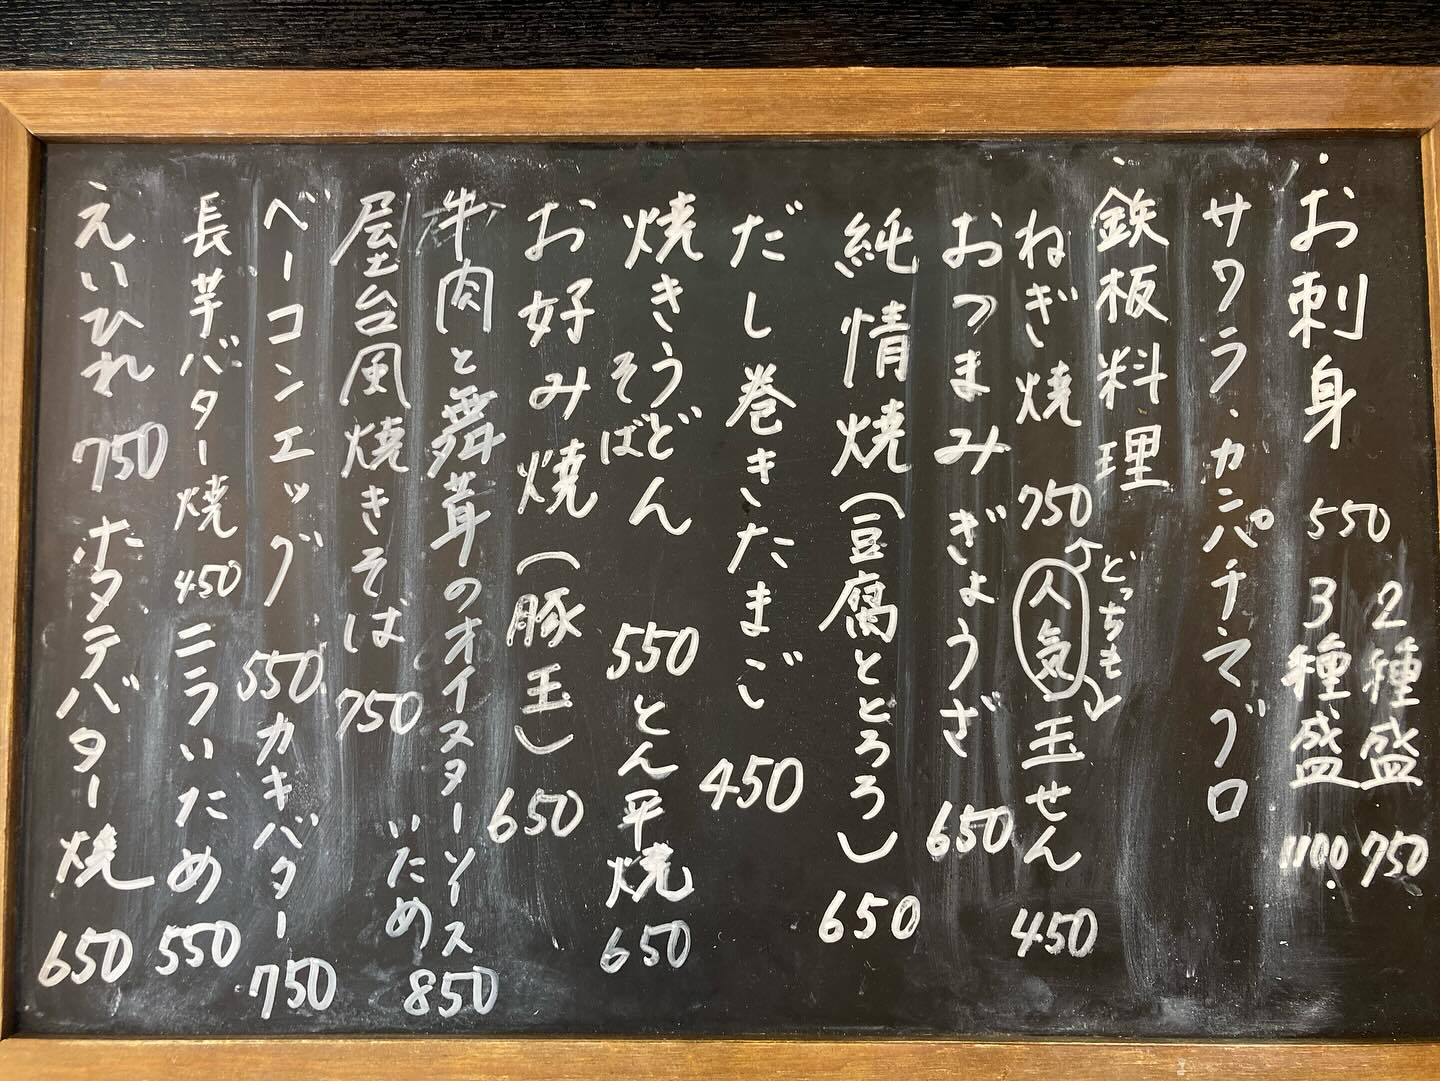 お刺身 550
2種盛 750
3種盛 1100
サワラ・カンパチマグロ
鉄板料理
ねぎ焼 750
どっちも
人気
玉せん 450
おつまみぎょうざ 650
純情焼(豆腐ととろろ) 650
だし巻きたまご 450
焼きうどん
そば 550
とん平焼 650
お好み焼(豚玉) 650
牛肉と舞茸のオイスターソース
いため 850
屋台風焼きそば 750
ベーコンエッグ 550
カキバター 750
長芋バター焼 450
ニラいため 550
えいひれ 750
ホタテバター焼 650